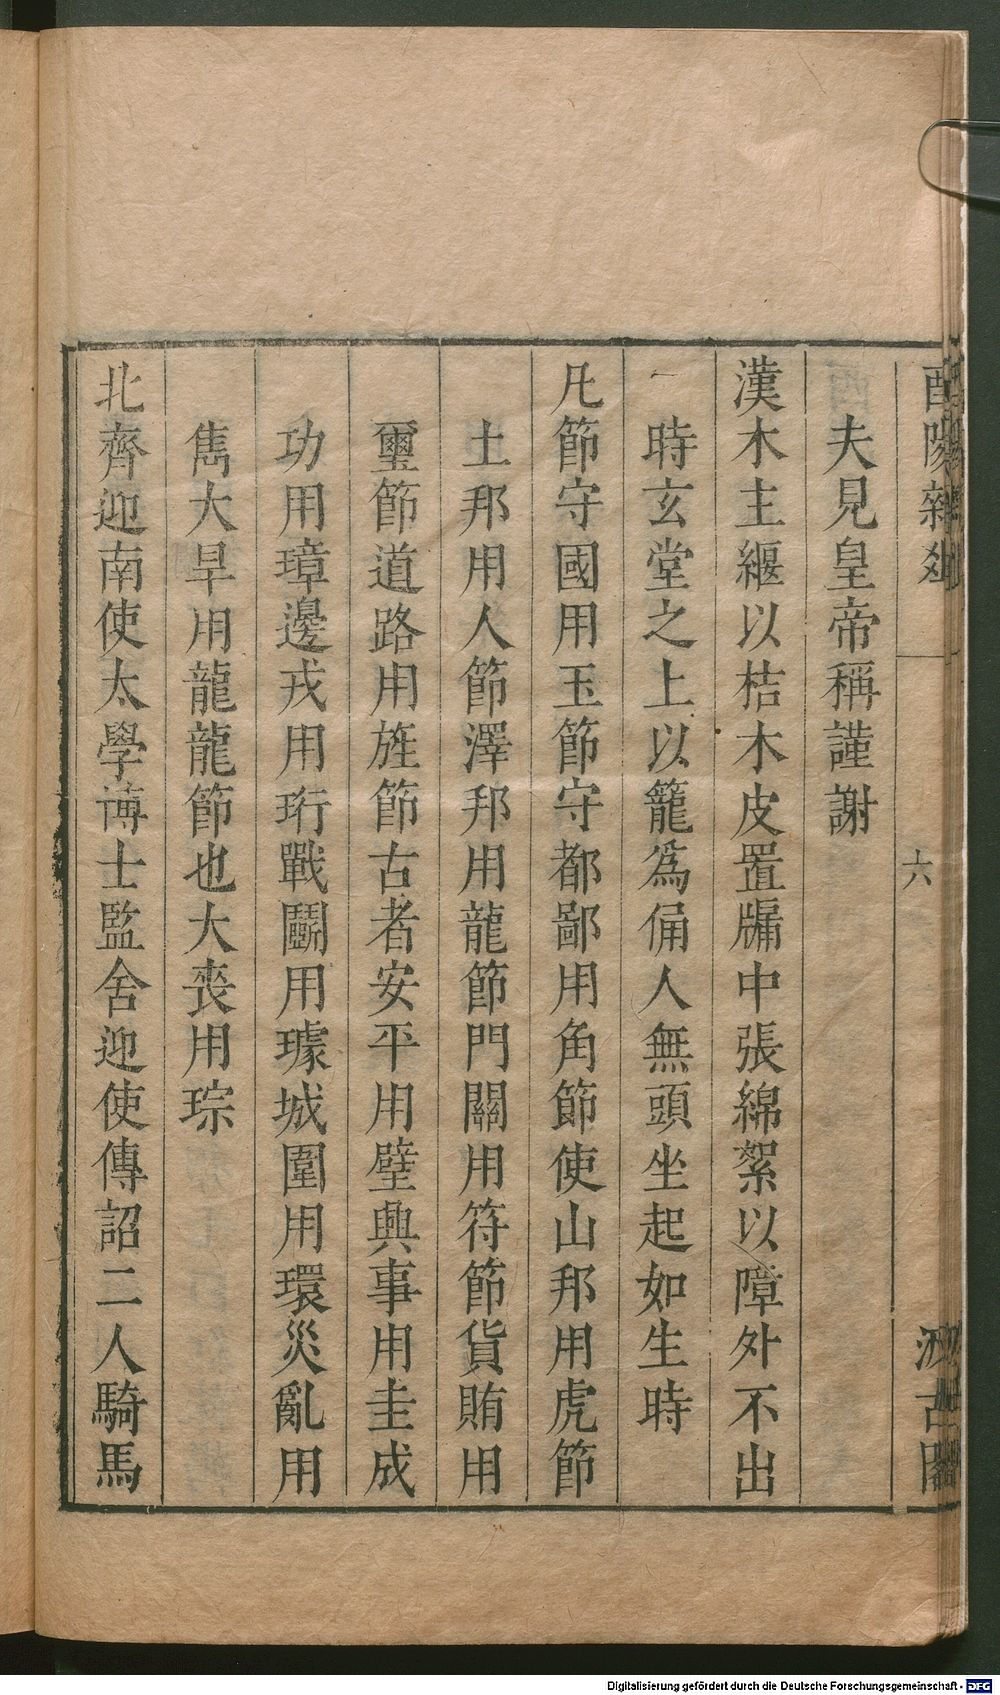 酉陽雜俎
六
汲古閣
夫見皇帝稱謹謝
漢木主纏以桔木皮置牖中張綿絮以障外不出
時玄堂之上以籠爲俑人無頭坐起如生時
凡節守國用玉節守都鄙用角節使山邦用虎節
土邦用人節澤邦用龍節門關用符節貨賄用
璽節道路用旌節古者安平用璧興事用圭成
功用璋邊戎用珩戰鬭用璩城圍用環災亂用
雋大旱用龍龍節也大喪用琮
北齊迎南使太學博士監舍迎使傳詔二人騎馬
Digitalisierung gefördert durch die Deutsche Forschungsgemeinschaft - DFG